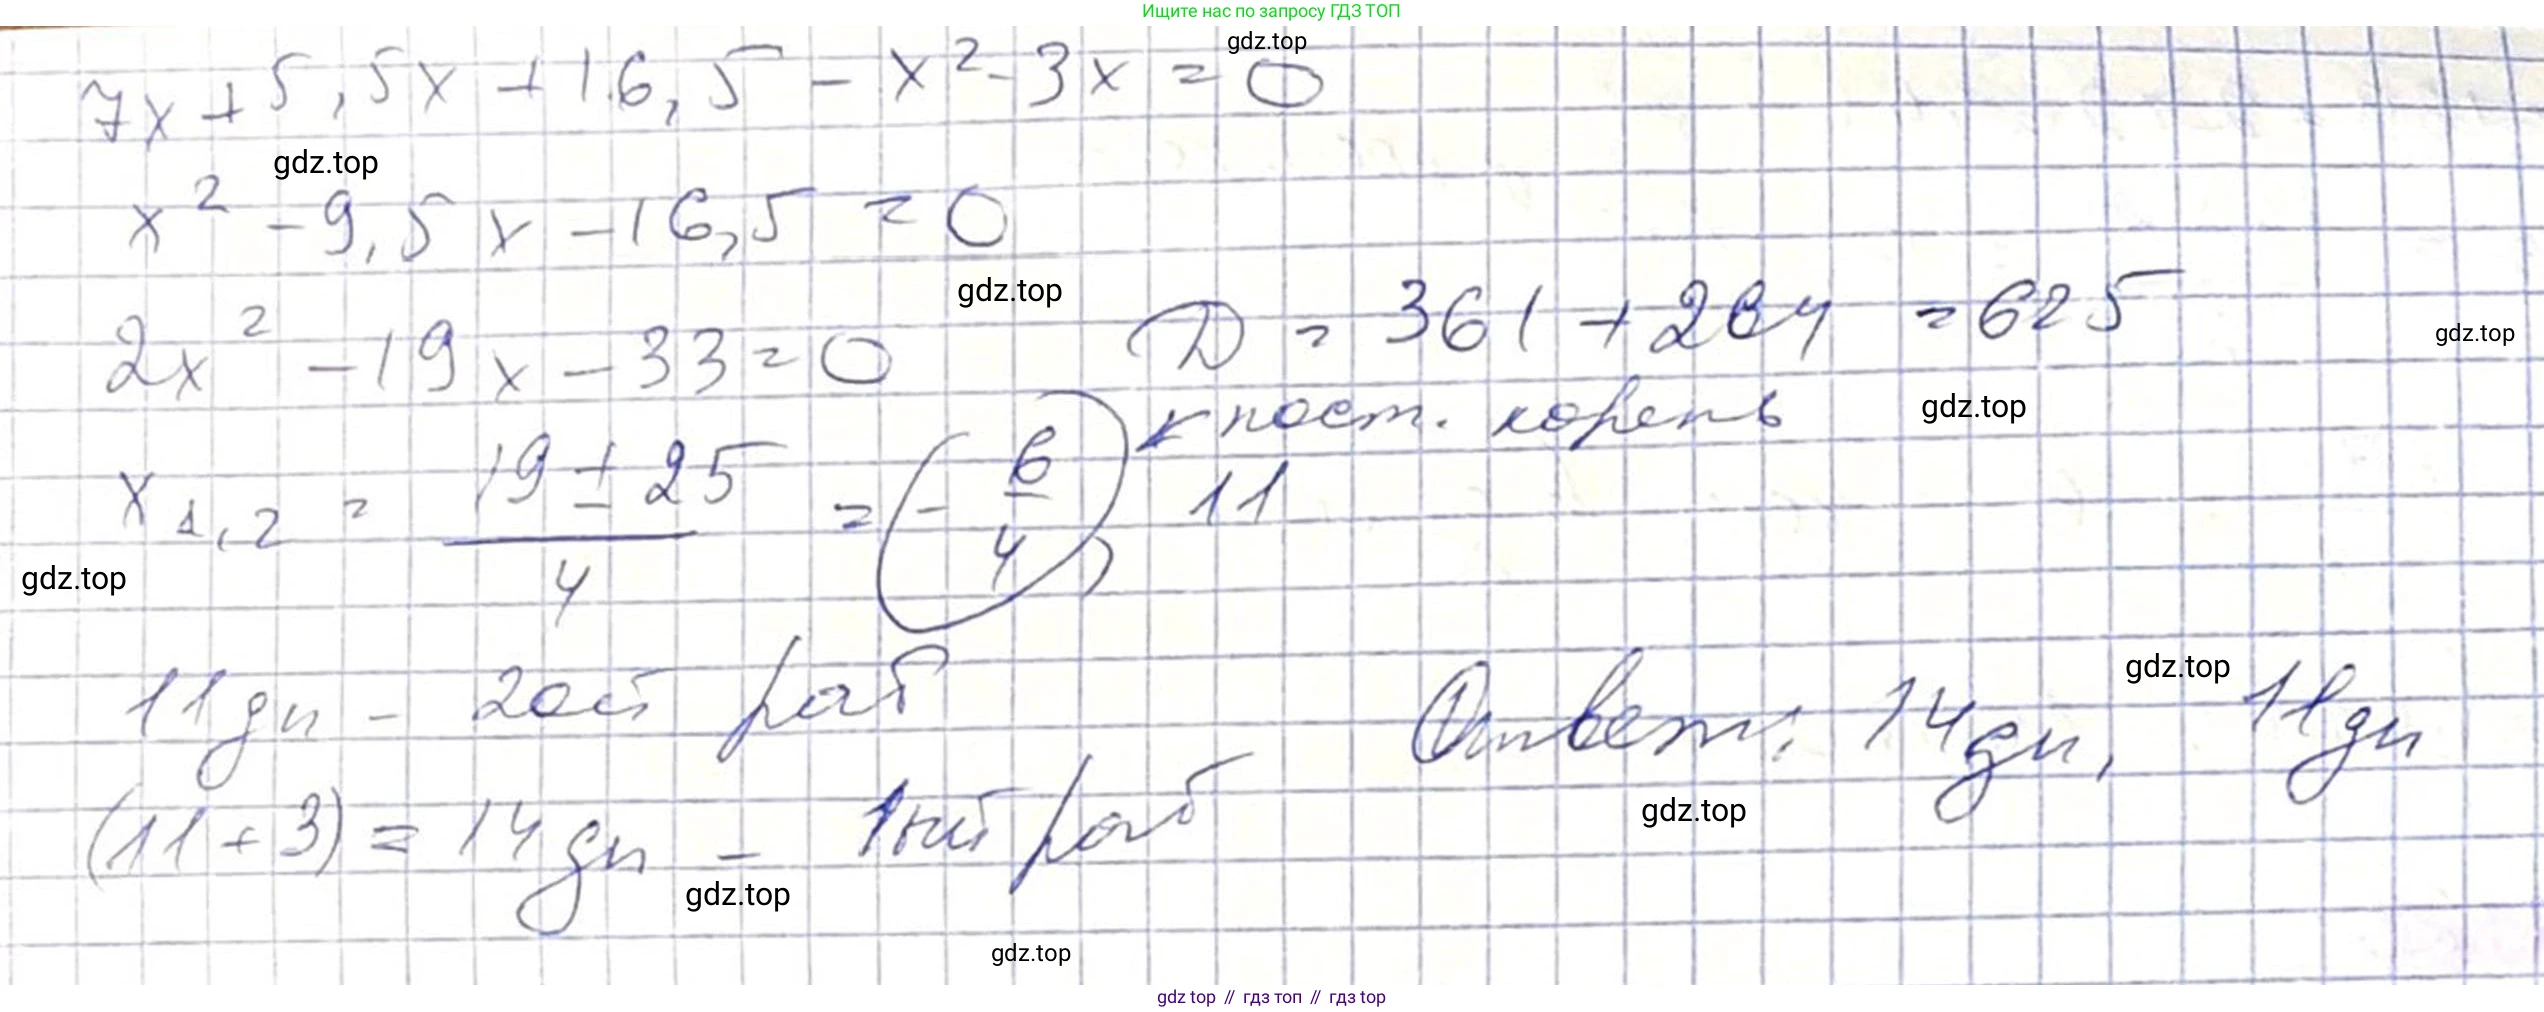 Ищите нас по запросу ГДЗ ТОП
gdz.top
7x + 5,5x + 16,5 - x² - 3x = 0
gdz.top
x² - 9,5x - 16,5 = 0
gdz.top
2x² - 19x - 33 = 0 D = 361 + 264 = 625
gdz.top
пост. корень
gdz.top
x1,2 = (19 ± 25)/4 = (- 6/4), 11
gdz.top
11 дн - 2ой раб
gdz.top
Ответ: 14 дн, 11 дн
(11 + 3) = 14 дн - 1ый раб
gdz.top
gdz.top
gdz.top
gdz top // гдз топ // гдз top